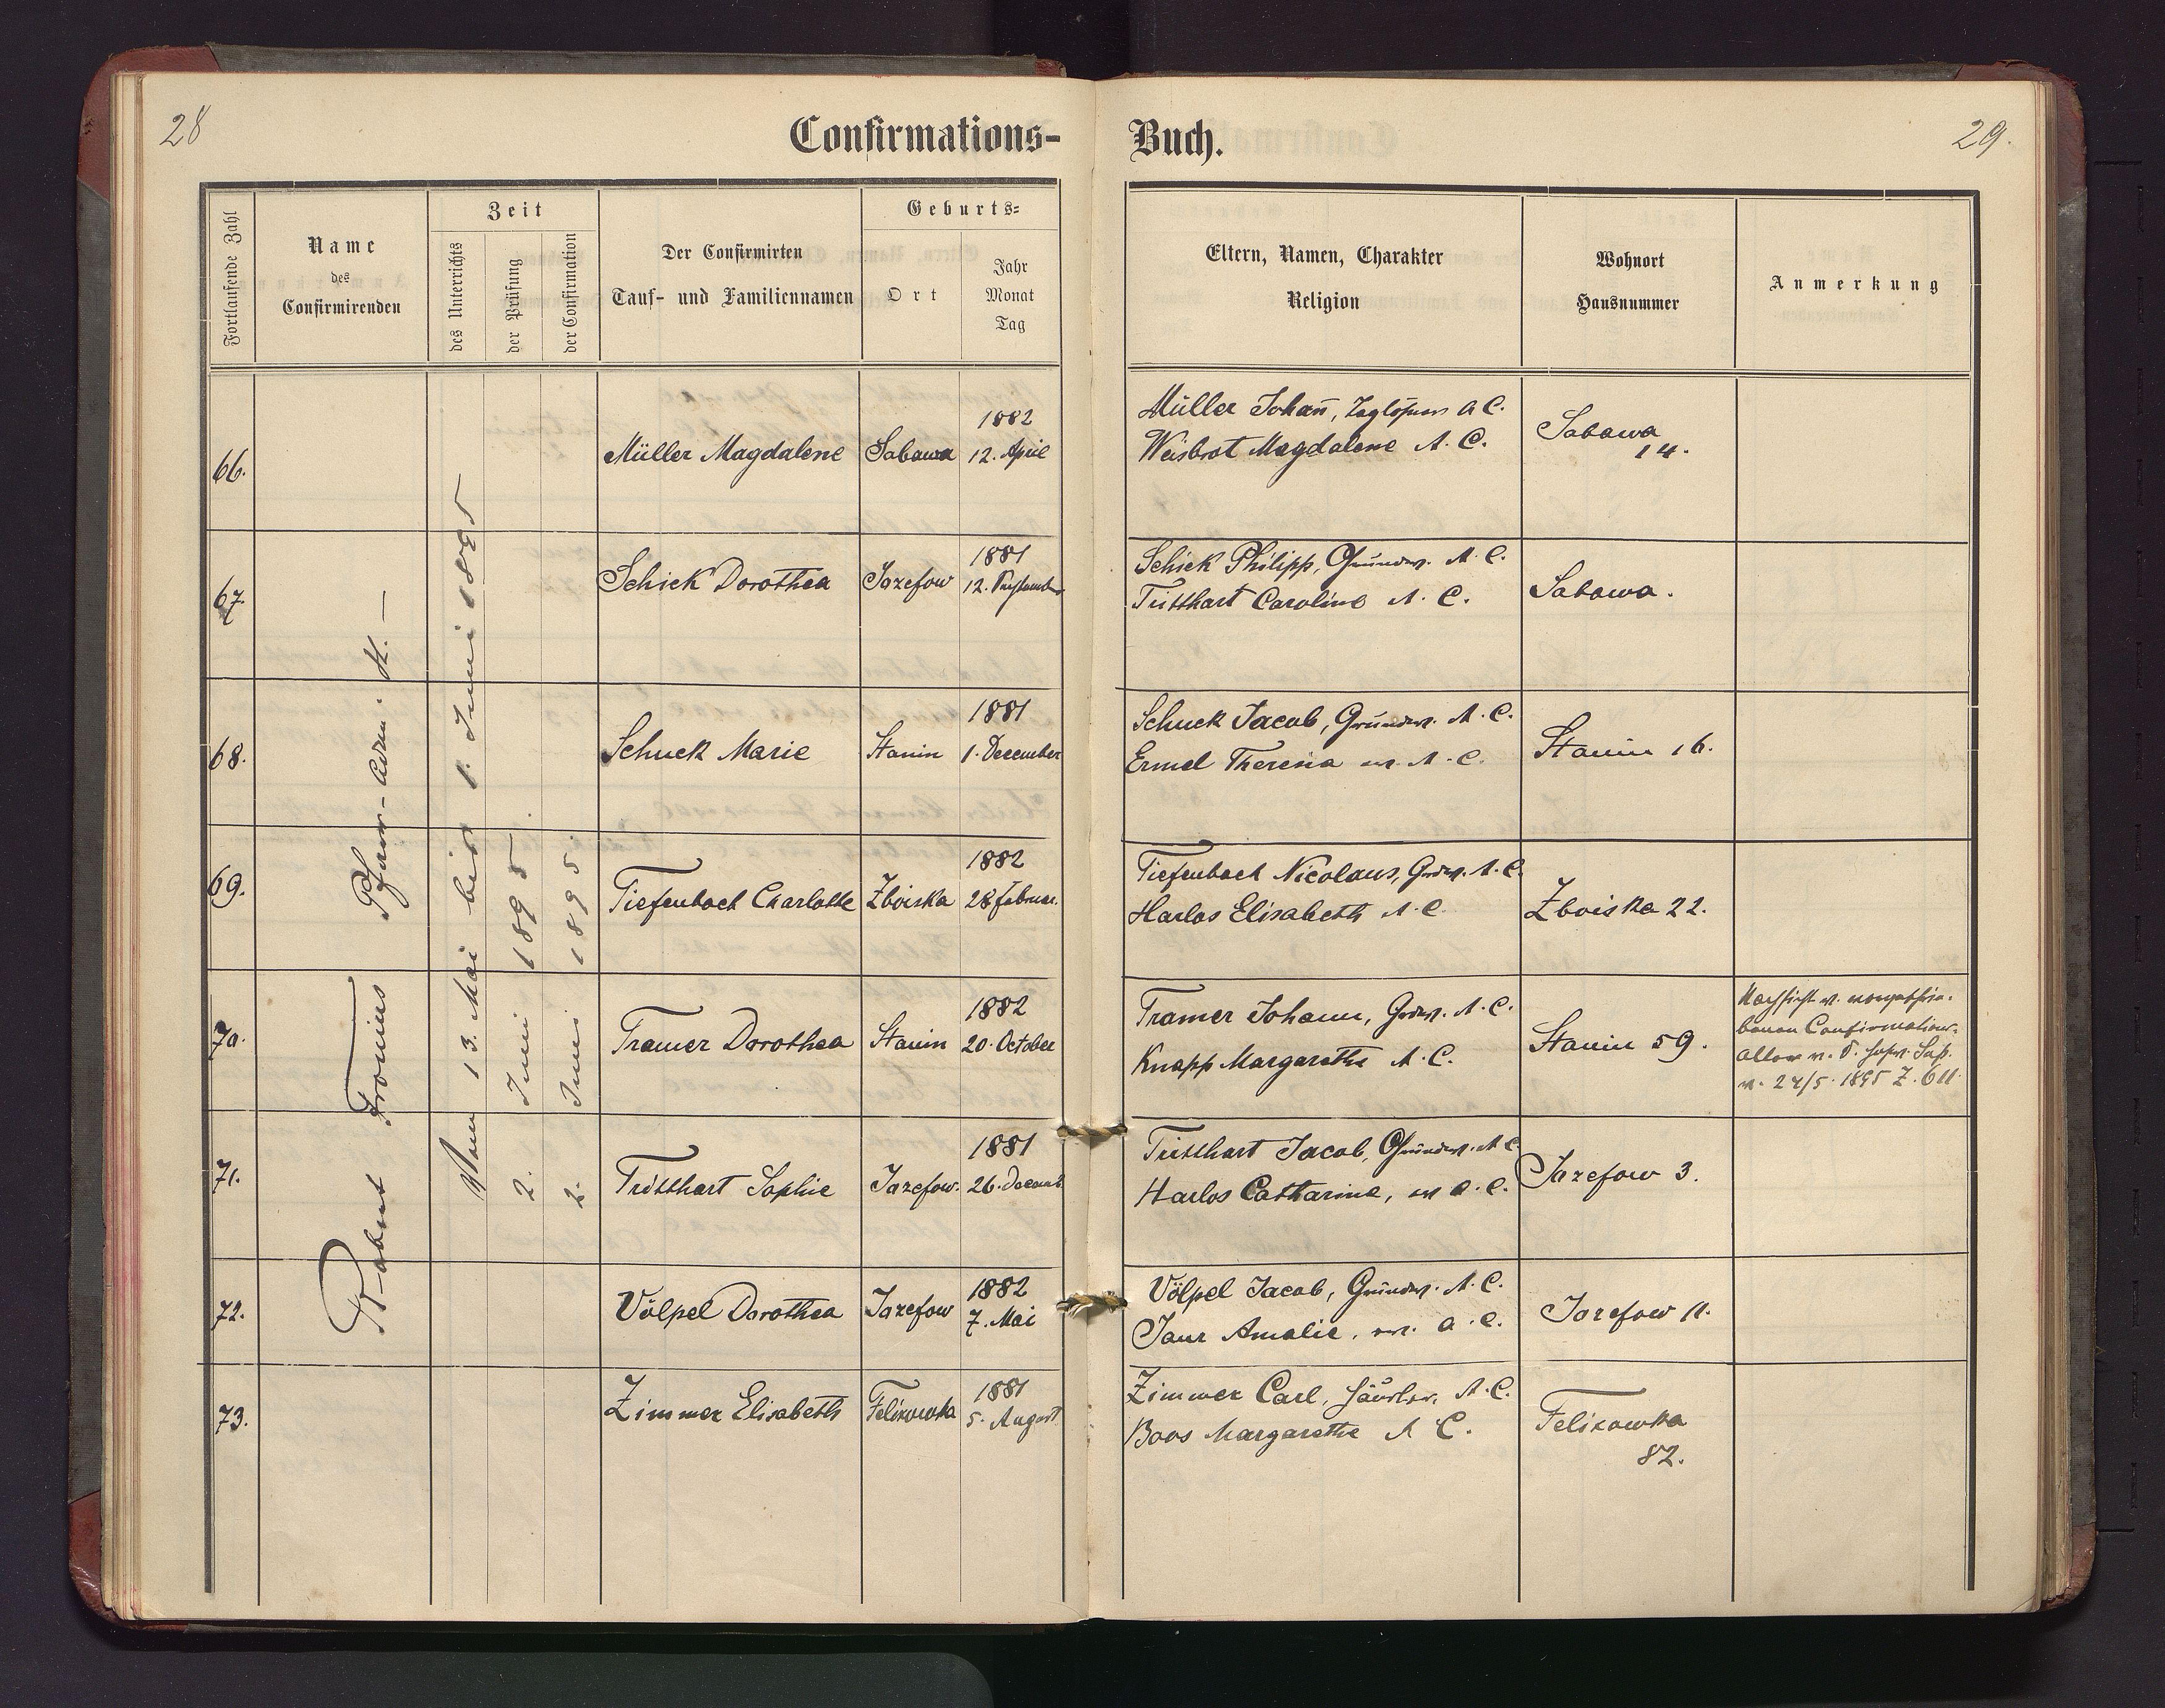 28
Confirmations-
Buch.
29.
Fortlaufende Zahl
Name
des
Confirmirenden
Zeit
des Unterrichts
der Prüfung
der Confirmation
Der Confirmirten
Tauf- und Familiennamen
Geburts-
Ort
Jahr
Monat
Tag
Eltern, Namen, Charakter
Religion
Wohnort
Hausnummer
Anmerkung
Robert Fronius Pfarr-Adm: H. —
Vom 13. Mai bis 1. Juni 1895
2. Juni 1895
2. Juni 1895
66.
Müller Magdalene
Sabawa
1882
12. April
Müller Johañ, A C.
Weisbrot Magdalene A. C.
Sabawa
14.
67.
Schick Dorothea
Jozefow
1881
12. September
Schick Philipp, Grundw. A. C.
Tritthart Caroline A. C.
Sabawa.
68.
Schuck Marie
Stanin
1881
1. December
Schuck Jacob, Grundw. A. C.
Ermel Theresia A. C.
Stanin 16.
69.
Tiefenbach Charlotte
Zboiska
1882
28 Februar.
Tiefenbach Nicolaus, Grdw. A. C.
Harlos Elisabeth A. C.
Zboiska 22.
70.
Tramer Dorothea
Stanin
1882
20. October
Tramer Johann, Grdw. A. C.
Knapp Margarethe A. C.
Stanin 59.
Nachsicht v. vorgeschrie-
benen Confirmations-
alter v. d.
v. 24/5. 1895 Z. 611.
71.
Tritthart Sophie
Jozefow.
1881
26. Decemb.
Tritthart Jacob, Grundw. A. C.
Harlos Catharine, A. C.
Jozefow 3.
72.
Völpel Dorothea
Jozefow
1882
7. Mai
Völpel Jacob, Grundw. A. C.
Jaur Amalie, A. C.
Jozefow 11.
73.
Zimmer Elisabeth
Felixowka
1881
5. August
Zimmer Carl, Häusler, A. C.
Boos Margarethe A C.
Felixowka
82.